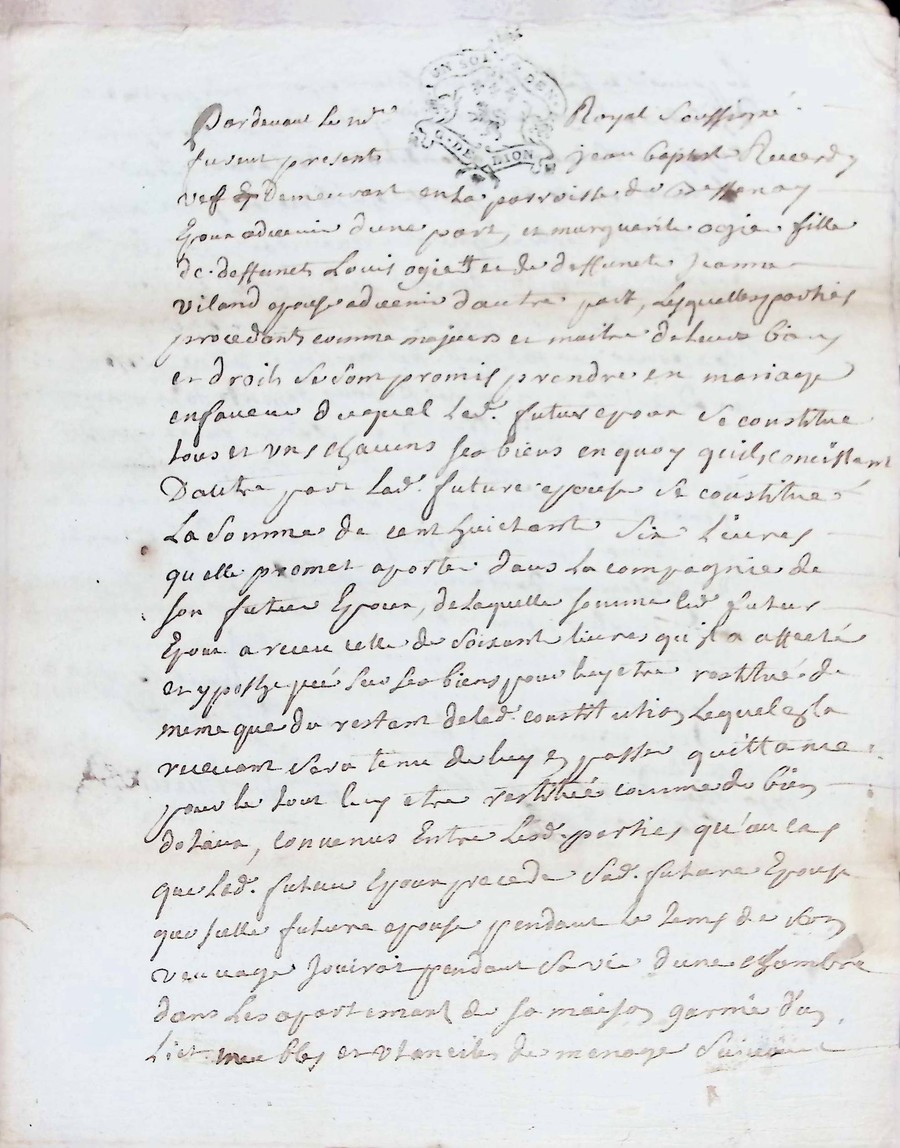 Pardevant le no.re Royal Soussigné
furent presents jean baptist
veff et Demeurant en la parroisse de
Epoux advenir d'une part, et marguerite ogier fille
de deffunct Louis ogier et de deffuncte jeanne
viland epouse advenir d'autre part, Lesquelles parties
procedant comme majeurs et maitre de leurs biens
et droits se sont promis prendre en mariage
en faveur duquel led. futur epoux se constitue
tous et uns chacuns ses biens en quoy quils concistent
D'autre part lad. future epouse se constitue
La somme de cent huictant six Livres
quelle promet aporter dans La compagnie de
son futur Epoux, de Laquelle somme led. futur
Epoux a receu celle de soixant livres qu'il a affecté
et ypothequé sur ses biens pour luy etre restitué de
meme que du restant de lad. constitution Lequel en la
recevant sera tenu de luy en passer quittance
pour le tout luy etre restitué comme de bien
dotaux, convenus Entre lesd. parties qu'au cas
que led. futur Epoux precede sad. future Epouse
que jcelle future epouse pendant le tems de son
veuvage jouirat pendant sa vie d'une chambre
dans Les apartement de sa maison garnie d'un
Lict meubles et utanciles de menage suivant